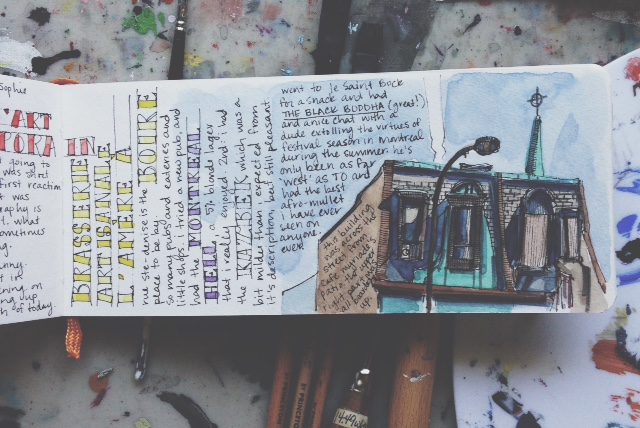 Sophie
'ART
POKA IN
going to
was sort
first reaction
t was
graphy is
t. what
sometimes
ng.
unny-
er in
ining on
ng up.
th of today
BRASSERIE
ARTISANALE
L'AMÈRE À
BOIRE
rue ste-denise is the
place to be
so many pubs and eateries and
little shops. i tried a new pub and
had the MONTREAL
HELL a 5% blonde lager
that i really enjoyed. 2nd i had
the KAZBEK which was a
bit milder than i expected from
it's description, but still pleasant.
went to le Saint Bock
for a snack and had
THE BLACK BUDDHA (great!)
and a nice chat with a
dude extolling the virtues of
festival season in Montreal
during the summer. he's
only been as far
'west' as TO and
had the best
afro-mullet
i have ever
seen on
anyone.
ever.
this building
was across the
street from
patio
up
PRINCETON
PRINCETON
14.49